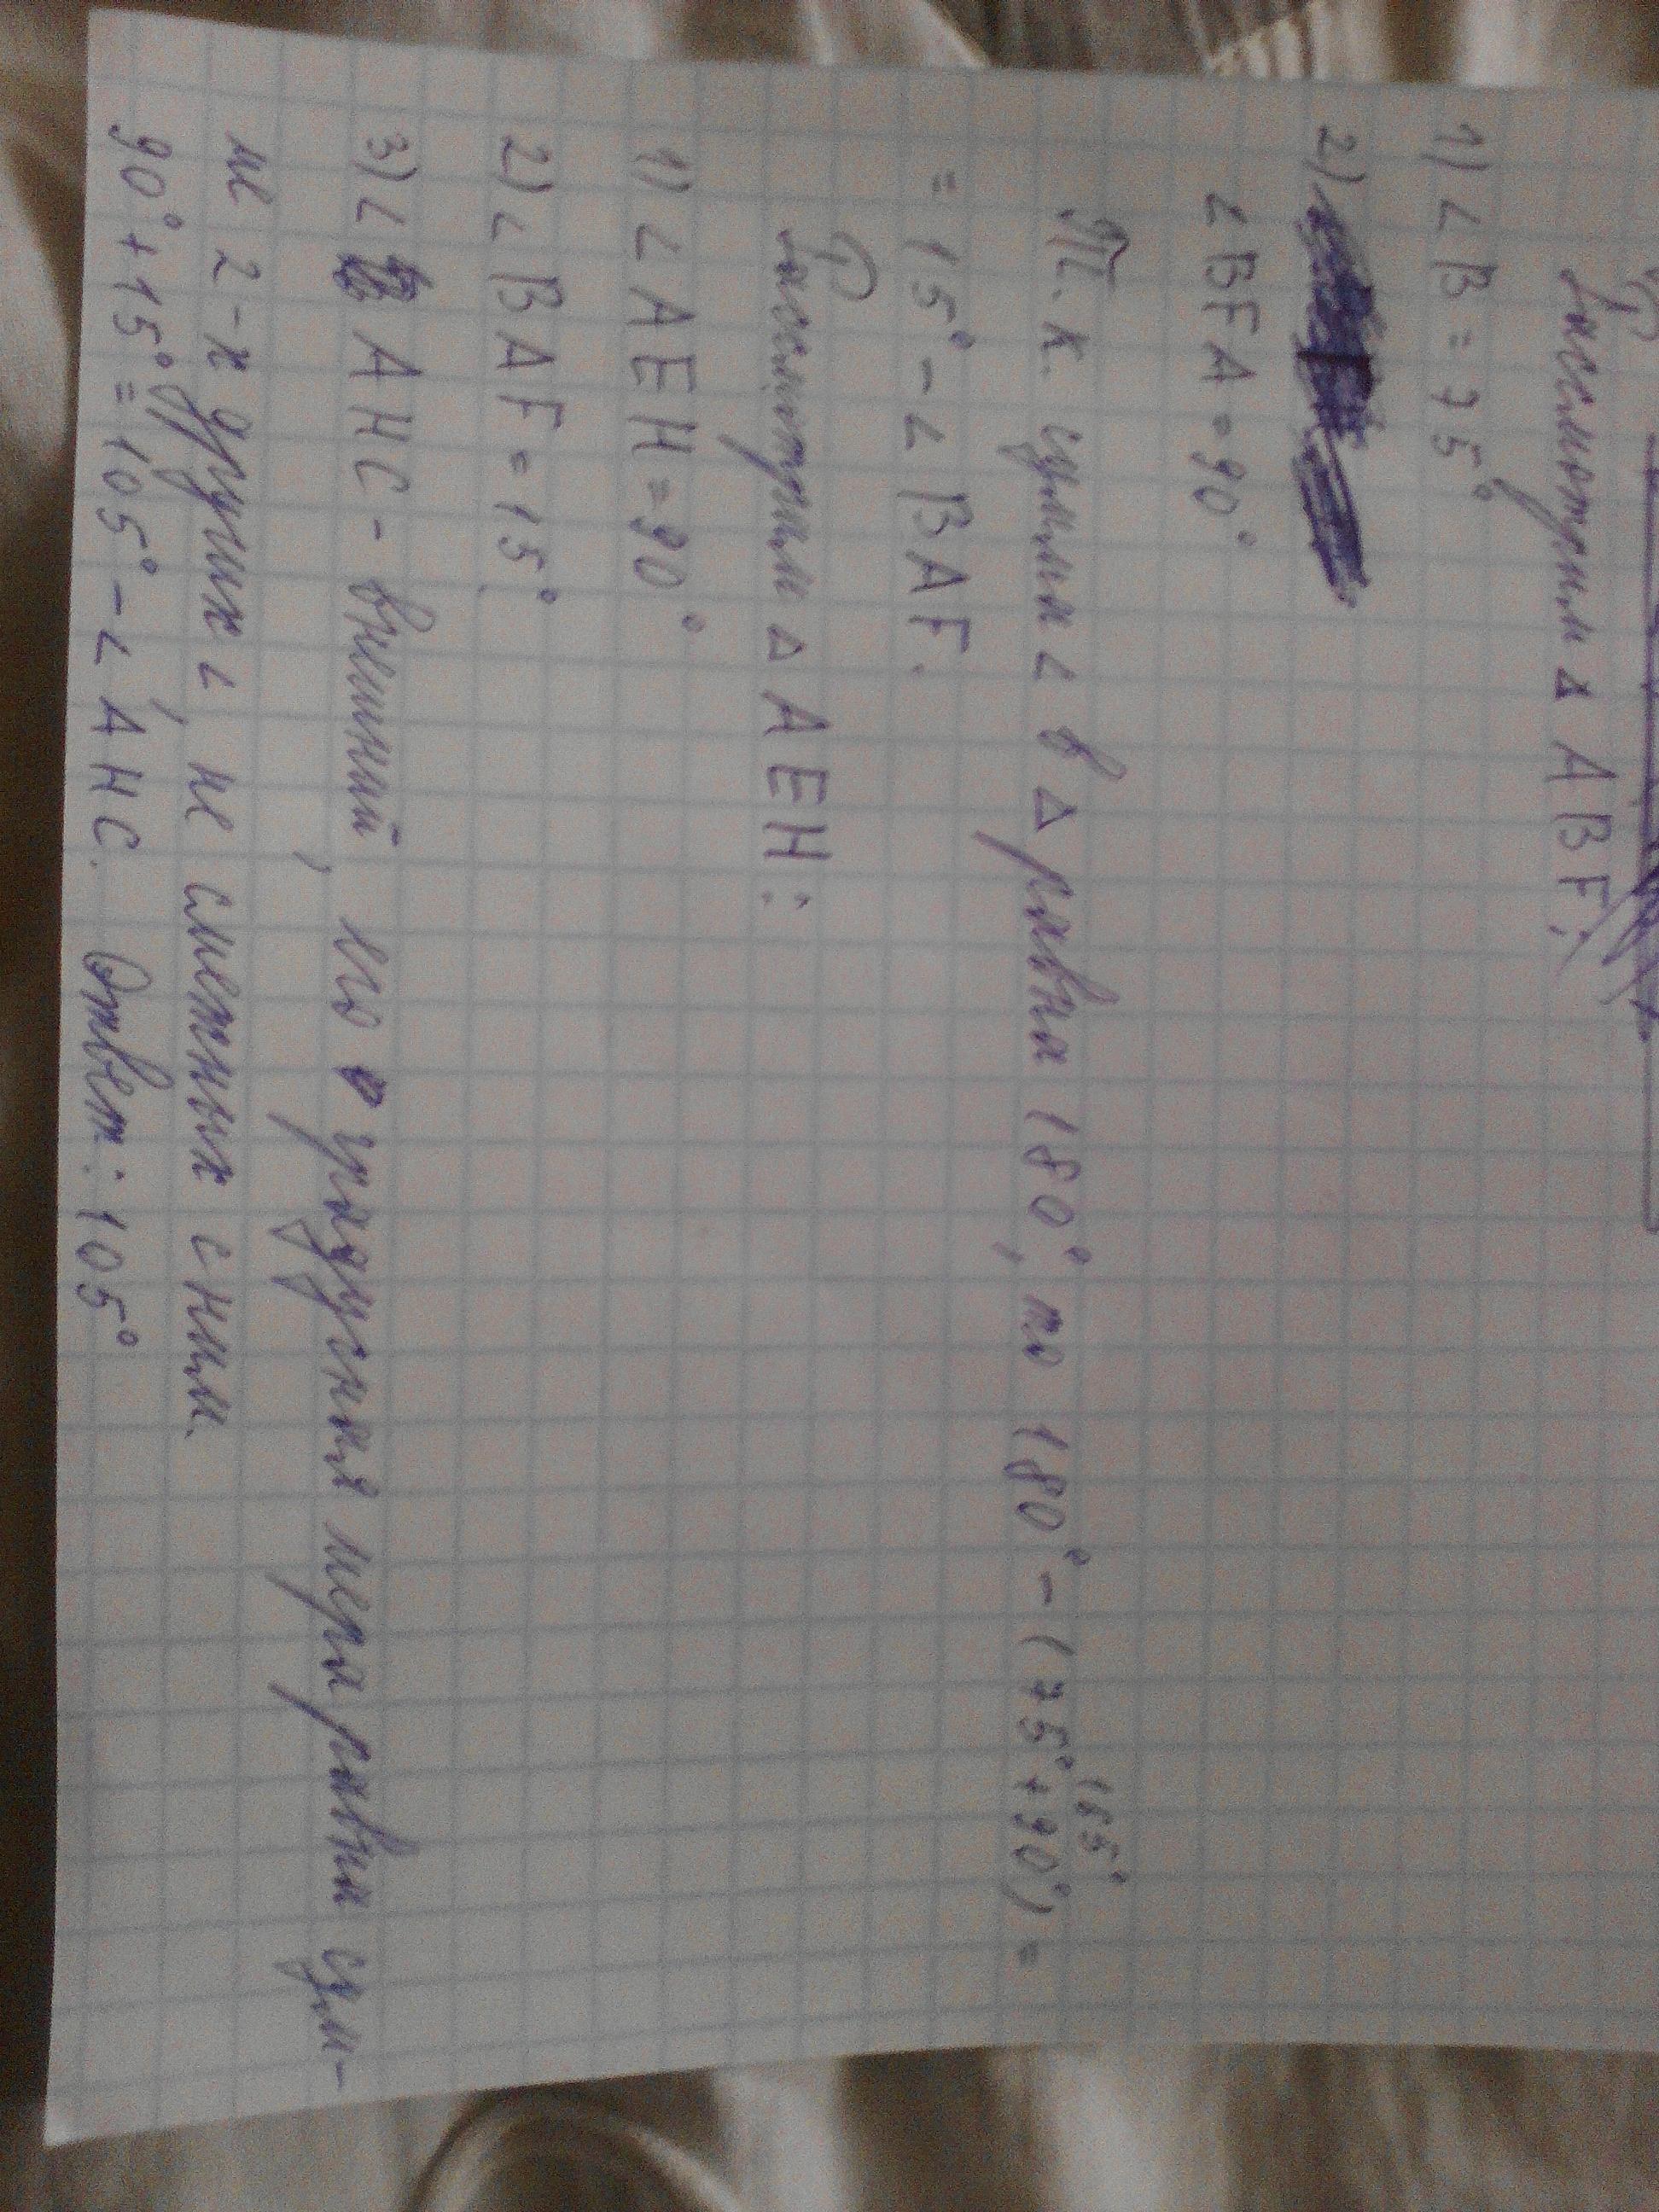 Рассмотрим △ ABF:
1) ∠B = 75°
2)
∠BFA = 90°
Т.к. сумма ∠ в △ равна 180°, то 180° - (75° + 90°) =
165°
= 15° - ∠BAF.
Рассмотрим △ AEH:
1) ∠AEH = 90°
2) ∠BAF = 15°
3) ∠ AHC - внешний, его градусная мера равна сум-
ме 2-х других ∠, не смежных с ним.
90° + 15° = 105° - ∠ AHC. Ответ: 105°